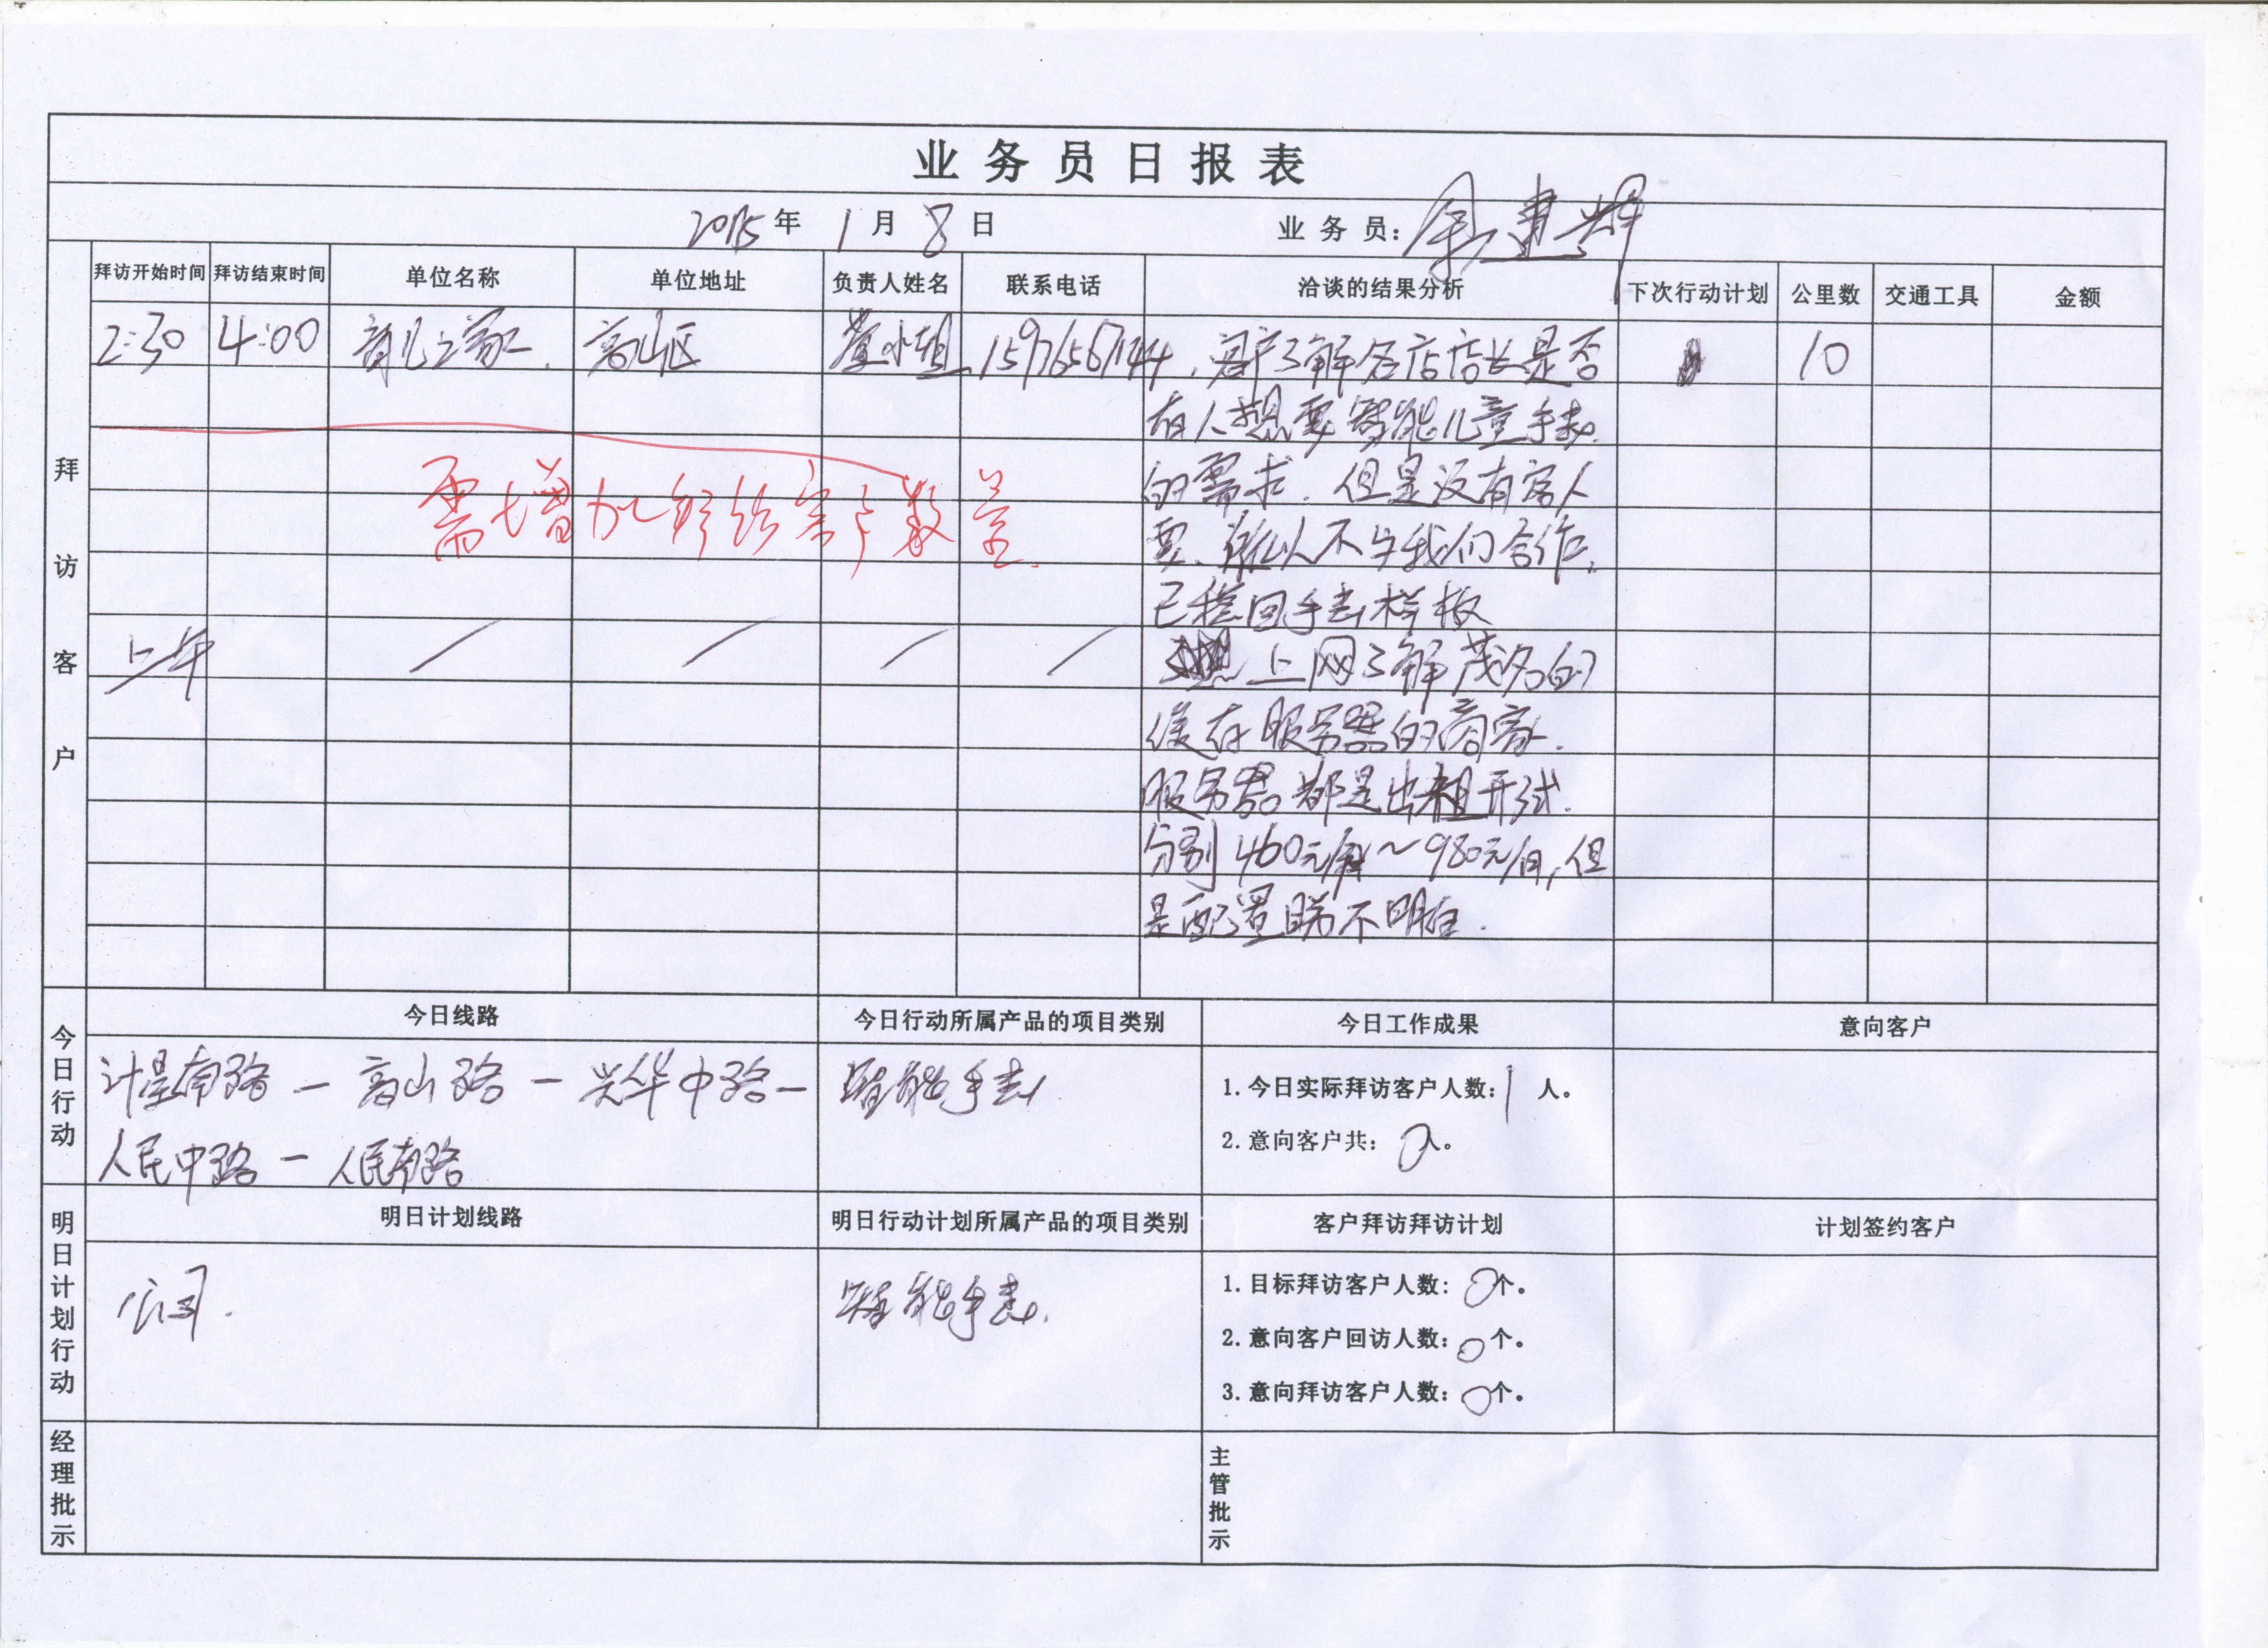 业务员日报表
2015年 1月 8日 业务员：
拜访客户
拜访开始时间 拜访结束时间 单位名称 单位地址 负责人姓名 联系电话 洽谈的结果分析 下次行动计划 公里数 交通工具 金额
2:30 4:00 育儿之家. 高山区 小姐 客户了解各店店长是否 10
有人想要智能儿童手表.
的需求. 但是没有客人
要、所以不与我们合作。
已 回手表样板
需增加 客户数量.
上午 / / / / 上网了解茂名的
 存服务器的商家.
服务器都是出租形式.
分别460元/月～980元/月,但
是配置 不明白.
今日行动
今日线路 今日行动所属产品的项目类别 今日工作成果 意向客户
计星南路 — 高山路 — 兴华中路— 智能手表 1.今日实际拜访客户人数：1 人。
人民中路 — 人民南路 2.意向客户共：0人。
明日计划行动
明日计划线路 明日行动计划所属产品的项目类别 客户拜访拜访计划 计划签约客户
公司. 智能手表. 1.目标拜访客户人数：0个。
2.意向客户回访人数：0个。
3.意向拜访客户人数：0个。
经理批示 主管批示